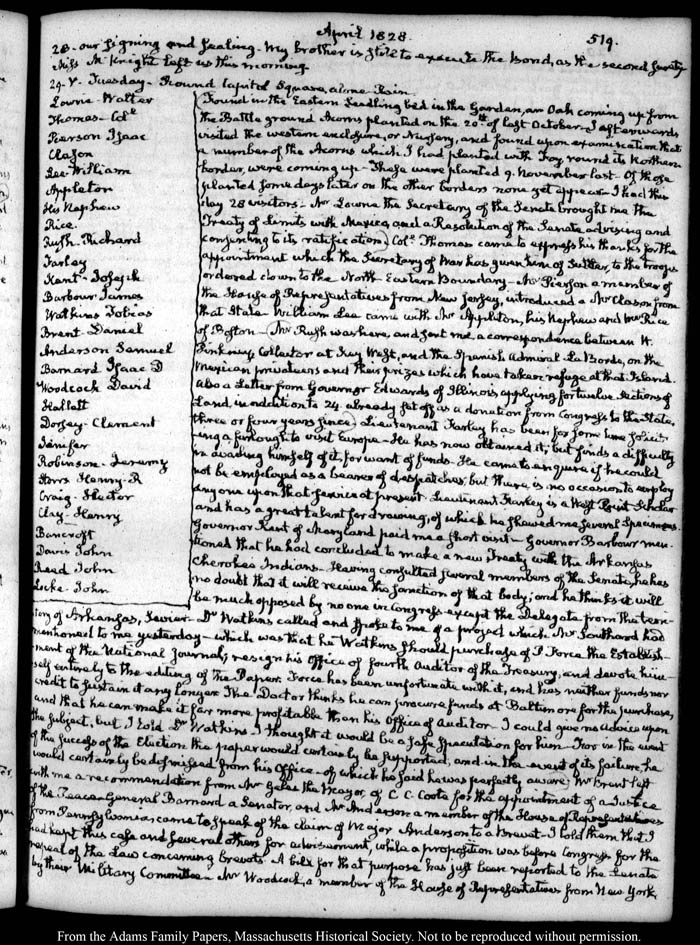 April 1828.
519.
28 - our signing and sealing - My brother is still to execute the bond, as the second surety
Miss McKnight left us this morning
29. V. Tuesday - Round Capitol Square, alone - Rain.
Lowrie - Walter
Thomas - Colt.
Pierson Isaac
Clason
Lee - William
Appleton
His Nephew
Rice.
Rush - Richard
Farley
Kent - Joseph
Barbour James
Watkins Tobias
Brent - Daniel
Anderson Samuel
Barnard Isaac D
Woodcock David
Hallett
Dorsey - Clement
Jenifer
Robinson - Jeremy
Storrs Henry. R
Craig - Hector
Clay - Henry
Bancroft
Davis John
Reed John
Locke John
Found in the Eastern Seedling bed in the Garden, an Oak coming up from
the Battle ground Acorns planted on the 20th of last October - I afterwards
visited the western enclosure, or Nursery, and found upon examination that
a number of the Acorns which I had planted with Foy round its Northern
border, were coming up - These were planted 9. November last - Of those
planted some days later on the other borders none yet appear - I had this
day 28 visitors - Mr Lowrie the Secretary of the Senate brought me the
Treaty of limits with Mexico, and a Resolution of the Senate advising and
consenting to its ratification) Colt. Thomas came to express his thanks for the
appointment which the Secretary of War has given him of Sutler, to the troops
ordered down to the North-Eastern Boundary - Mr Pierson a member of
the House of Representatives from New Jersey, introduced a Mr Clason from
that State - William Lee came with Mr Appleton, his Nephew and Mr Rice
of Boston - Mr Rush was here, and sent me a correspondence between W.
Pinkney Collector at Key West, and the Spanish Admiral La Borde, on the
Mexican privateers and their prizes which have taken refuge at that Island.
Also a Letter from Governor Edwards of Illinois applying for twelve sections of
Land, in addition to 24 already set off as a donation from Congress to the State,
three or four years since) Lieutenant Farley has been for some time solicit-
ing a furlough to visit Europe - He has now obtained it, but finds a difficulty
in availing himself of it, for want of funds - He came to enquire if he could
not be employed as a bearer of despatches; but there is no occasion to employ
any one upon that service at present. Lieutenant Farley is a West Point Scholar
and has a great talent for drawing, of which he shewed me several Specimens.
Governor Kent of Maryland paid me a short visit - Governor Barbour men-
tioned that he had concluded to make a new Treaty with the Arkansas
Cherokee Indians - Having consulted several members of the Senate, he has
no doubt that it will receive the sanction of that body; and he thinks it will
be much opposed by no one in Congress except the Delegate from the terri-
tory of Arkansas, Sevier - Dr Watkins called and spoke to me of a project which Mr Southard had
mentioned to me yesterday - which was that he Watkins should purchase of P. Force the Establish-
ment of the National Journal; resign his Office of fourth Auditor of the Treasury, and devote him-
self entirely to the editing of the Paper. Force has been unfortunate with it, and has neither funds nor
credit to sustain it any longer. The Doctor thinks he can procure funds at Baltimore for the purchase,
and that he can make it far more profitable than his Office of Auditor - I could give no advice upon
the subject, but I told Dr Watkins I thought it would be a safe speculation for him - For in the event
of the success of the Election the paper would certainly be supported, and in the event of its failure, he
would certainly be dismissed from his Office - of which he said he was perfectly aware) Mr Brent left
with me a recommendation from Mr Gales the Mayor, of C. C. Coote for the appointment of a Justice
of the Peace - General Barnard a Senator, and Mr Anderson a member of the House of Representatives
from Pennsylvania came to speak of the claim of Major Anderson to a Brevet - I told them that I
had kept this case and several others for advisement, while a proposition was before Congress for the
repeal of the Law concerning Brevets - A bill for that purpose has just been reported to the Senate
by their Military Committee - Mr Woodcock, a member of the House of Representatives from New York
From the Adams Family Papers, Massachusetts Historical Society. Not to be reproduced without permission.